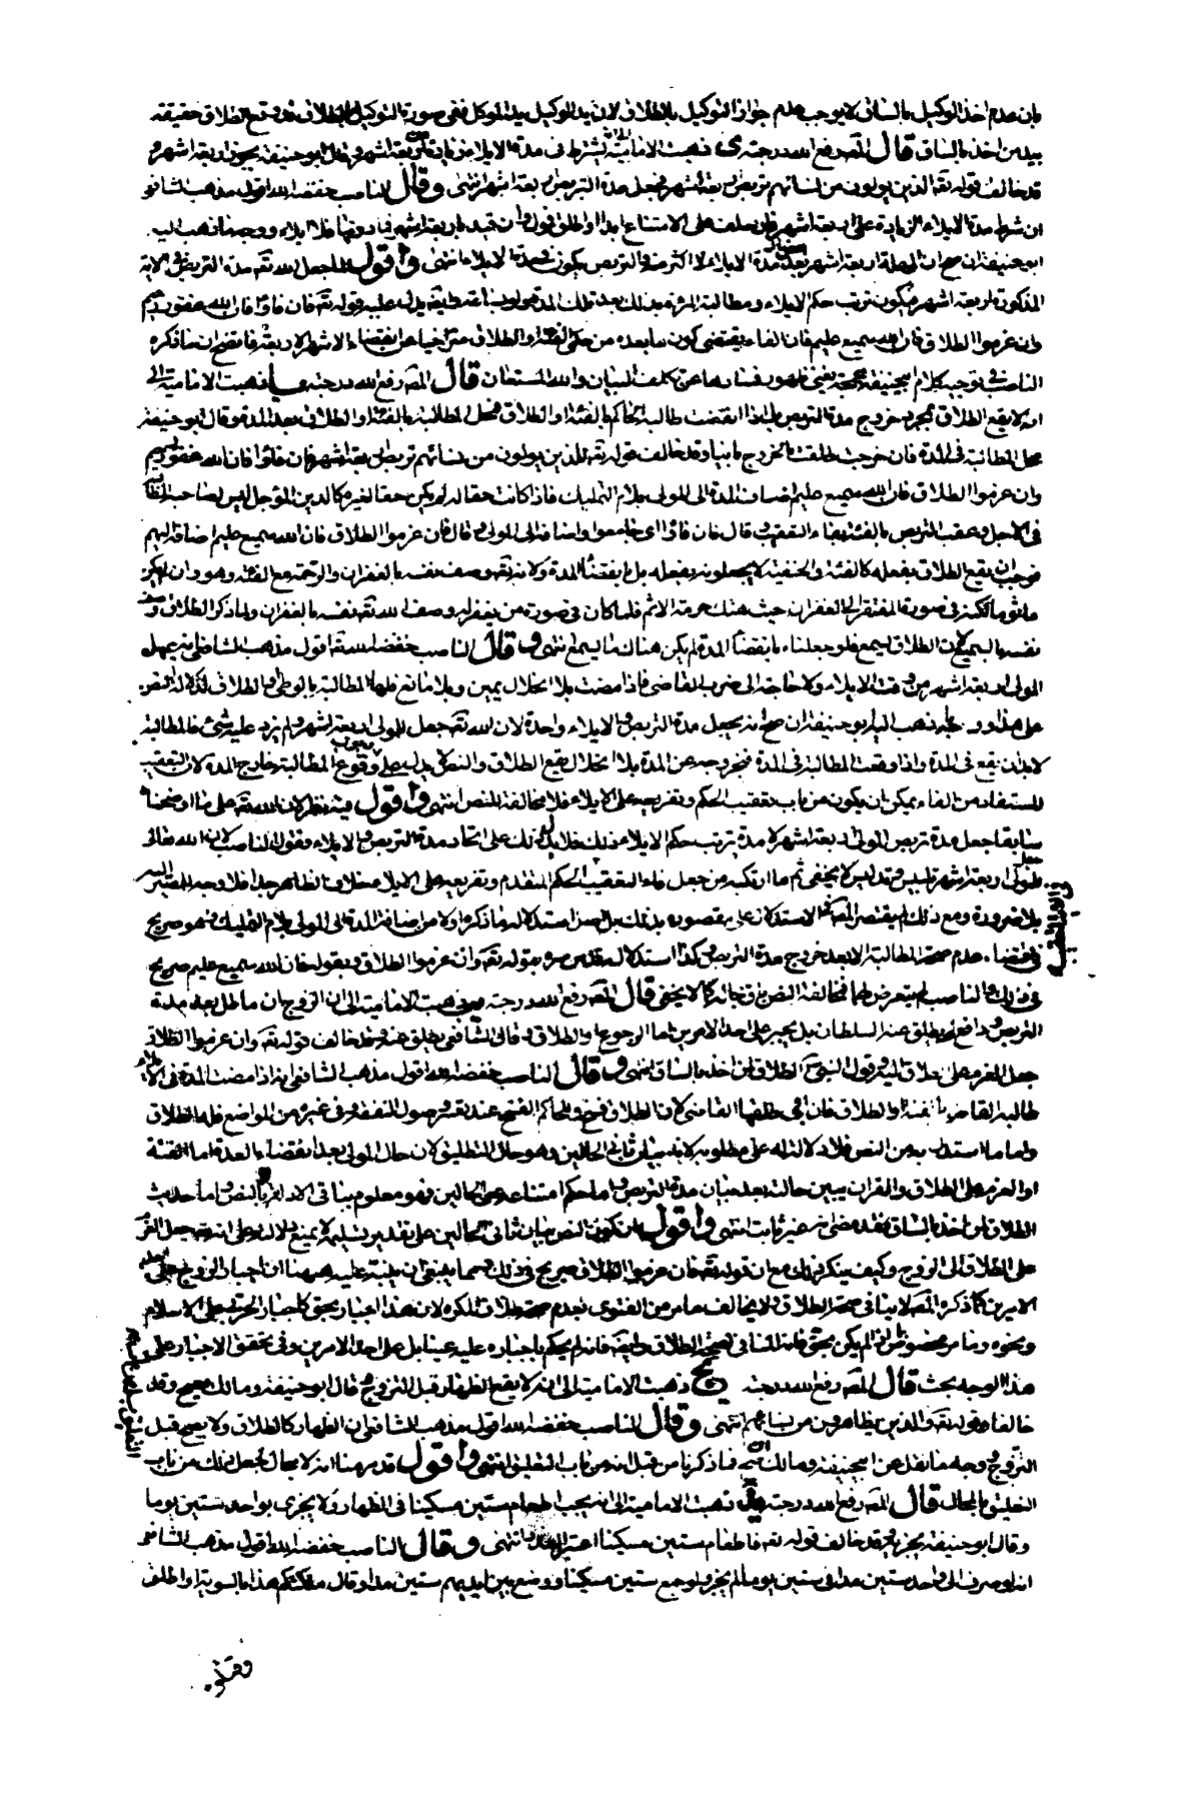 بان عدم اخذ الوكيل بالساق لا يوجب عدم جواز التوكيل بالطلاق لان يد الوكيل يد الموكل ففي صورة التوكيل بالطلاق قد وقع الطلاق حقيقة
بيد من اخذ بالساق قال المصـ رفع الله درجته ى ذهبت الامامية الى انه يشترط في مدة الايلاء زيادة عن اربعة اشهر وقال ابو حنيفة يجوز اربعة اشهر و
قد خالف قوله تعـ الذين يولون من نسائهم تربص اربعة اشهر فجعل مدة التربص اربعة اشهر انتهى وقال الناصب خفضه الله اقول مذهب الشافعي
ان شرط مدة الايلاء الزيادة على اربعة اشهر فان حلف على الامتناع ابدا او اطلق فمول وان قيد باربعة اشهر فما دونها فلا ايلاء ووجه ما ذهب اليه
ابو حنيفة ان صح ان المهلة اربعة اشهر بعد مدة الايلاء لا اكثر منها والتربص يكون في مدة الايلاء انتهى واقول لما جعل الله تعـ مدة التربص في الاية
المذكورة اربعة اشهر فيكون ترتب حكم الايلاء ومطالبة المرءة بذلك بعد تلك المدة يدل عليه قوله تعـ فان فاؤا فان الله غفور رحيم
وان عزموا الطلاق فان الله سميع عليم فان الفاء يقتضي كون ما بعده من حكم الفئة او الطلاق متراخيا عن انقضاء الاشهر الاربعة فاتضح ان ما ذكره
الناصب في توجيه كلام ابيحنيفة يغني ظهور فساده عن تكلف البيان والله المستعان قال المصـ رفع الله درجته يا ذهبت الامامية الى
انه لا يقع الطلاق بمجرد خروج مدة التربص بل اذا انقضت طالبه الحاكم بالفئة او الطلاق فمحل المطالبة بالفئة او الطلاق بعد المدة وقال ابو حنيفة
محل المطالبة في المدة فان خرجت طلقت بالخروج باينا وقد خالف قوله تعـ للذين يولون من نسائهم تربص اربعة اشهر فان فاؤا فان الله غفور رحيم
وان عزموا الطلاق فان الله سميع عليم اضاف المدة الى المولى بلام التمليك فاذا كانت حقا له لم يكن حقا لغيره كالدين المؤجل ليس لصاحبه المطالبة
في الاجل وعقب التربص بالفئة بفاء التعقيب قال فان فاؤا اى جامعوا واضافه الى المولى وقال فان عزموا الطلاق فان الله سميع عليم اضافه اليهم
فوجب ان يقع الطلاق بفعله كالفئة والحنفية لا يجعلونه بفعله بل بانقضاء المدة ولانه تعـ وصف نفسه بالغفران والرحمة مع الفئة وهو وان لم يكن
ماثوما لكنه في صورة المفتقر الى الغفران حيث هتك حرمة الاثم فلما كان في صورة من يغفر له وصف الله تعـ نفسه بالغفران ولما ذكر الطلاق وصف
نفسه بالسميع لان الطلاق يسمع فلو جعلناه بانقضاء المدة لم يكن هناك ما يسمع انتهى وقال الناصب خفضه الله تعـ اقول مذهب الشافعي انه يمهل
المولى اربعة اشهر من وقت الايلاء ولا حاجة الى ضرب القاضي فاذا مضت بلا انحلال يمين وبلا مانع فلها المطالبة بالوطى او الطلاق لدلالة النص
على هذا ووجه ما ذهب اليه ابو حنيفة ان صح انه يجعل مدة التربص والايلاء واحدة لان الله تعـ جعل للمولى اربعة اشهر ولم يزد عليه شئ فالمطالبة
لا بد ان تقع في المدة واذا وقعت المطالبة في المدة فخروجه عن المدة بلا انحلال يقع الطلاق والنص لا يدل على وقوع المطالبة خارج المدة لان التعقيب
المستفاد من الفاء يمكن ان يكون من باب تعقيب الحكم وتفريعه على الايلاء فلا مخالفة للنص انتهى واقول فيه نظر لان الله تعـ على ما اوضحناه
سابقا جعل مدة تربص المولى اربعة اشهر لا مدة ترتب حكم الايلاء فذلك فلا يدل ذلك على اتحاد مدة التربص والايلاء فقول الناصب لان الله تعالى
جعل للمولى اربعة اشهر تلبيس وتدليس كما لا يخفى ثم ما ارتكبه من جعل فاء التعقيب الحكم المتقدم وتفريعه على الايلاء خلاف الظاهر جدا فلا وجه للمصير اليه
بلا ضرورة ومع ذلك لم يقتصر المصـ في الاستدلال على مقصوده بذلك بل استدلاله فما ذكره اولا من اضافة المدة الى المولى بلام التمليك فهو صريح
في اقتضاء عدم صحة المطالبة الا بعد خروج مدة التربص وكذا استدلال المصـ قدس سره بقوله تعـ وان عزموا الطلاق وبقوله فان الله سميع عليم صريح
في ذلك والناصب لم يتعرض لهما فمخالفة النص باق بحاله كما لا يخفى قال المصـ رفع الله درجته يب ذهبت الامامية الى ان الزوج ان ماطل بعد مدة
التربص ودافع لم يطلق عنه السلطان بل يجبر على احد الامرين اما الرجوع او الطلاق وقال الشافعي يطلق عنه وقد خالف قوله تعـ وان عزموا الطلاق
جعل العزم على طلاق اليه وقول النبي ص الطلاق لمن اخذ بالساق انتهى وقال الناصب خفضه الله اقول مذهب الشافعي انه اذا مضت المدة في الايلاء
طالبه القاضي بالفئة او الطلاق فان ابى طلقها القاضي لان الطلاق فسخ وللحاكم الفسخ عند تعسر حصول النفقة وفي غيره من المواضع فله الطلاق
واما ما استدل به من النص فلا دلالة له على مطلوبه لانه بيان ثاني الحالين وهو حال التطليق لان حال المولى بعد انقضاء المدة اما الفئة
او العزم على الطلاق والقران يبين حاله بعد بيان مدة التربص واما حكم امتناعه عن الحالين فهو معلوم من باقي الادلة لا بالنص واما حديث
الطلاق لمن اخذ بالساق فقد مضى انه غير ثابت انتهى واقول ان كون النص بيان ثاني الحالين على تقدير تسليمه لا يمنع دلالته على انه تعـ جعل العزم
على الطلاق الى الزوج وكيف ينكر ذلك مع ان قوله تعـ فان عزموا الطلاق صريح في ذلك ومما ينبغي ان ينبه عليه ههنا ان اجبار الزوج على احد
الامرين كما ذكره المصـ لا ينافي صحة الطلاق ولا يخالف ما مر من الفتوى بعدم صحة طلاق المكره لان هذا اجبار بحق كاجبار الحربي على الاسلام
ونحوه وما مر مخصوص بما لم يكن بحق فانه المنافي لصحة الطلاق وايضا فانه لم يحكم باجباره عليه عينا بل على احد الامرين وفي تحقق الاجبار على
هذا الوجه بحث قال المصـ رفع الله درجته يج ذهبت الامامية الى انه لا يقع الظهار قبل التزويج وقال ابو حنيفة ومالك يصح وقد
خالفا قوله تعـ والذين يظاهرون من نسائهم انتهى وقال الناصب خفضه الله اقول مذهب الشافعي ان الظهار كالطلاق ولا يصح قبل
التزويج ووجه ما نقل عن ابيحنيفة ومالك ان صح فما ذكرنا من قبل انه من باب التعليق انتهى واقول قد مر منا انه لا مجال لجعل ذلك من باب
التعليق بالمحال قال المصـ رفع الله درجته يد ذهبت الامامية الى انه يجب اطعام ستين مسكينا في الظهار ولا يجزى بواحد ستين يوما
وقال ابو حنيفة يجزيه وقد خالف قوله تعـ فاطعام ستين مسكينا اعتبر العدد انتهى وقال الناصب خفضه الله اقول مذهب الشافعي
انه لو صرف الى واحد ستين مدا في ستين يوما لم يجز ولو جمع ستين مسكينا ووضع بين ايديهم ستين مدا وقال ملكتكم هذا بالسوية او اطلق
فقبلوه